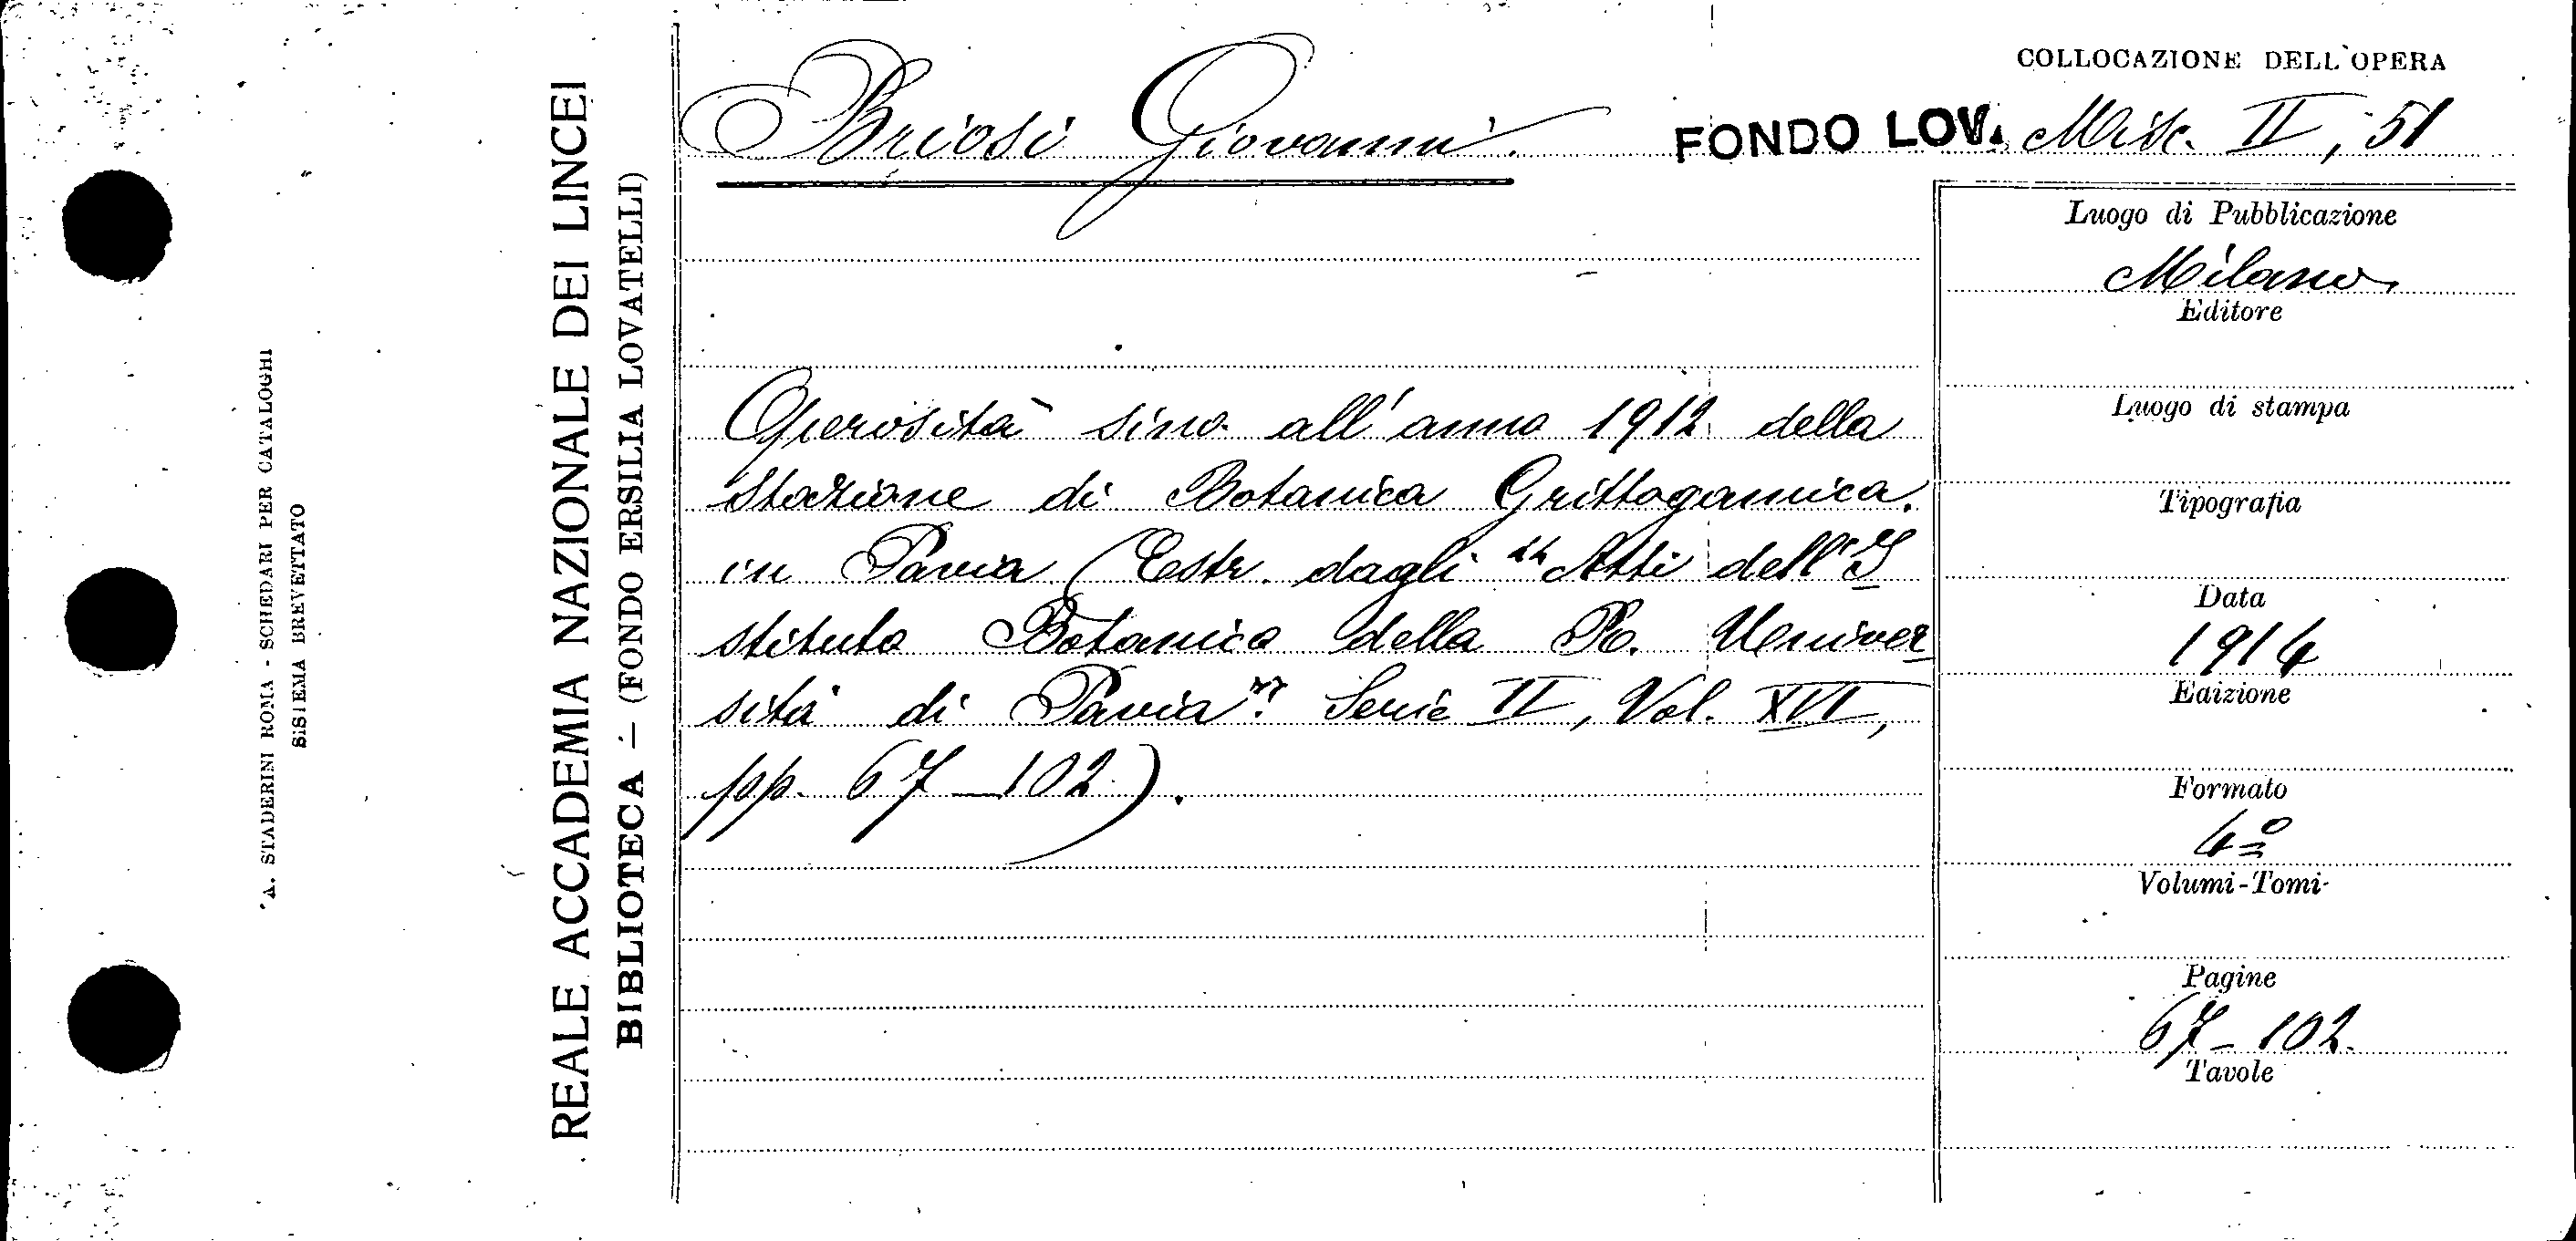 COLLOCAZIONE DELL'OPERA
Briosi Giovanni.
FONDO LOV. Misc. II, 51
Operosità sino all'anno 1912 della
Stazione di Botanica Crittogamica.
in Pavia (Estr. dagli "Atti dell'I
stituto Botanico della R. Univer
sità di Pavia". Serie II, Vol. XVI,
pp. 67-102).
Luogo di Pubblicazione
Milano
Editore
Luogo di stampa
Tipografia
Data
1914
Edizione
Formato
4º
Volumi-Tomi
Pagine
67-102.
Tavole
REALE ACCADEMIA NAZIONALE DEI LINCEI
BIBLIOTECA - (FONDO ERSILIA LOVATELLI)
A. STADERINI ROMA - SCHEDARI PER CATALOGHI
SISTEMA BREVETTATO